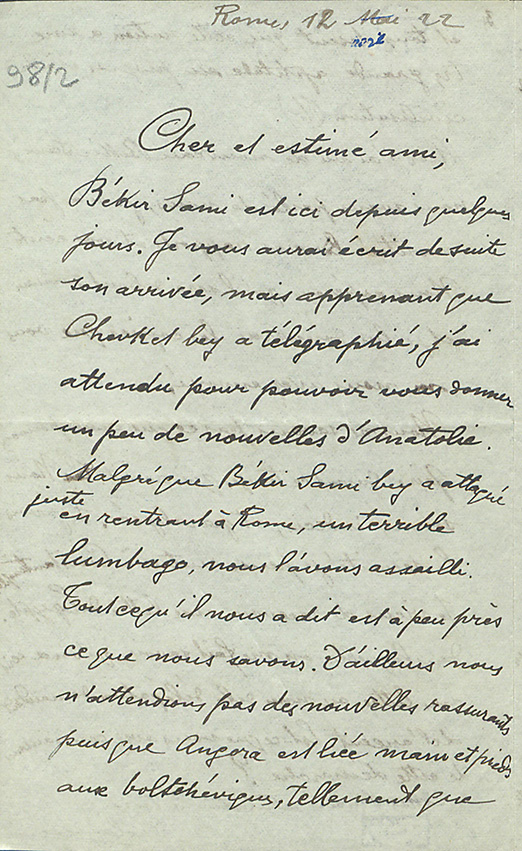 Rome, 12 Mai 22
98/2
Cher et estimé ami,
Békir Sami est ici depuis quelques
jours. Je vous aurai écrit de suite
son arrivée, mais apprenant que
Chevket bey a télégraphié, j'ai
attendu pour pouvoir vous donner
un peu de nouvelles d'Anatolie.
Malgré que Békir Sami bey a attapé
juste
en rentrant à Rome, un terrible
lumbago, nous l'avons assailli.
Tout ce qu'il nous a dit est à peu près
ce que nous savons. D'ailleurs nous
n'attendions pas des nouvelles rassurants
puis que Angora est liée main et pieds
aux boltchéviques, tellement que